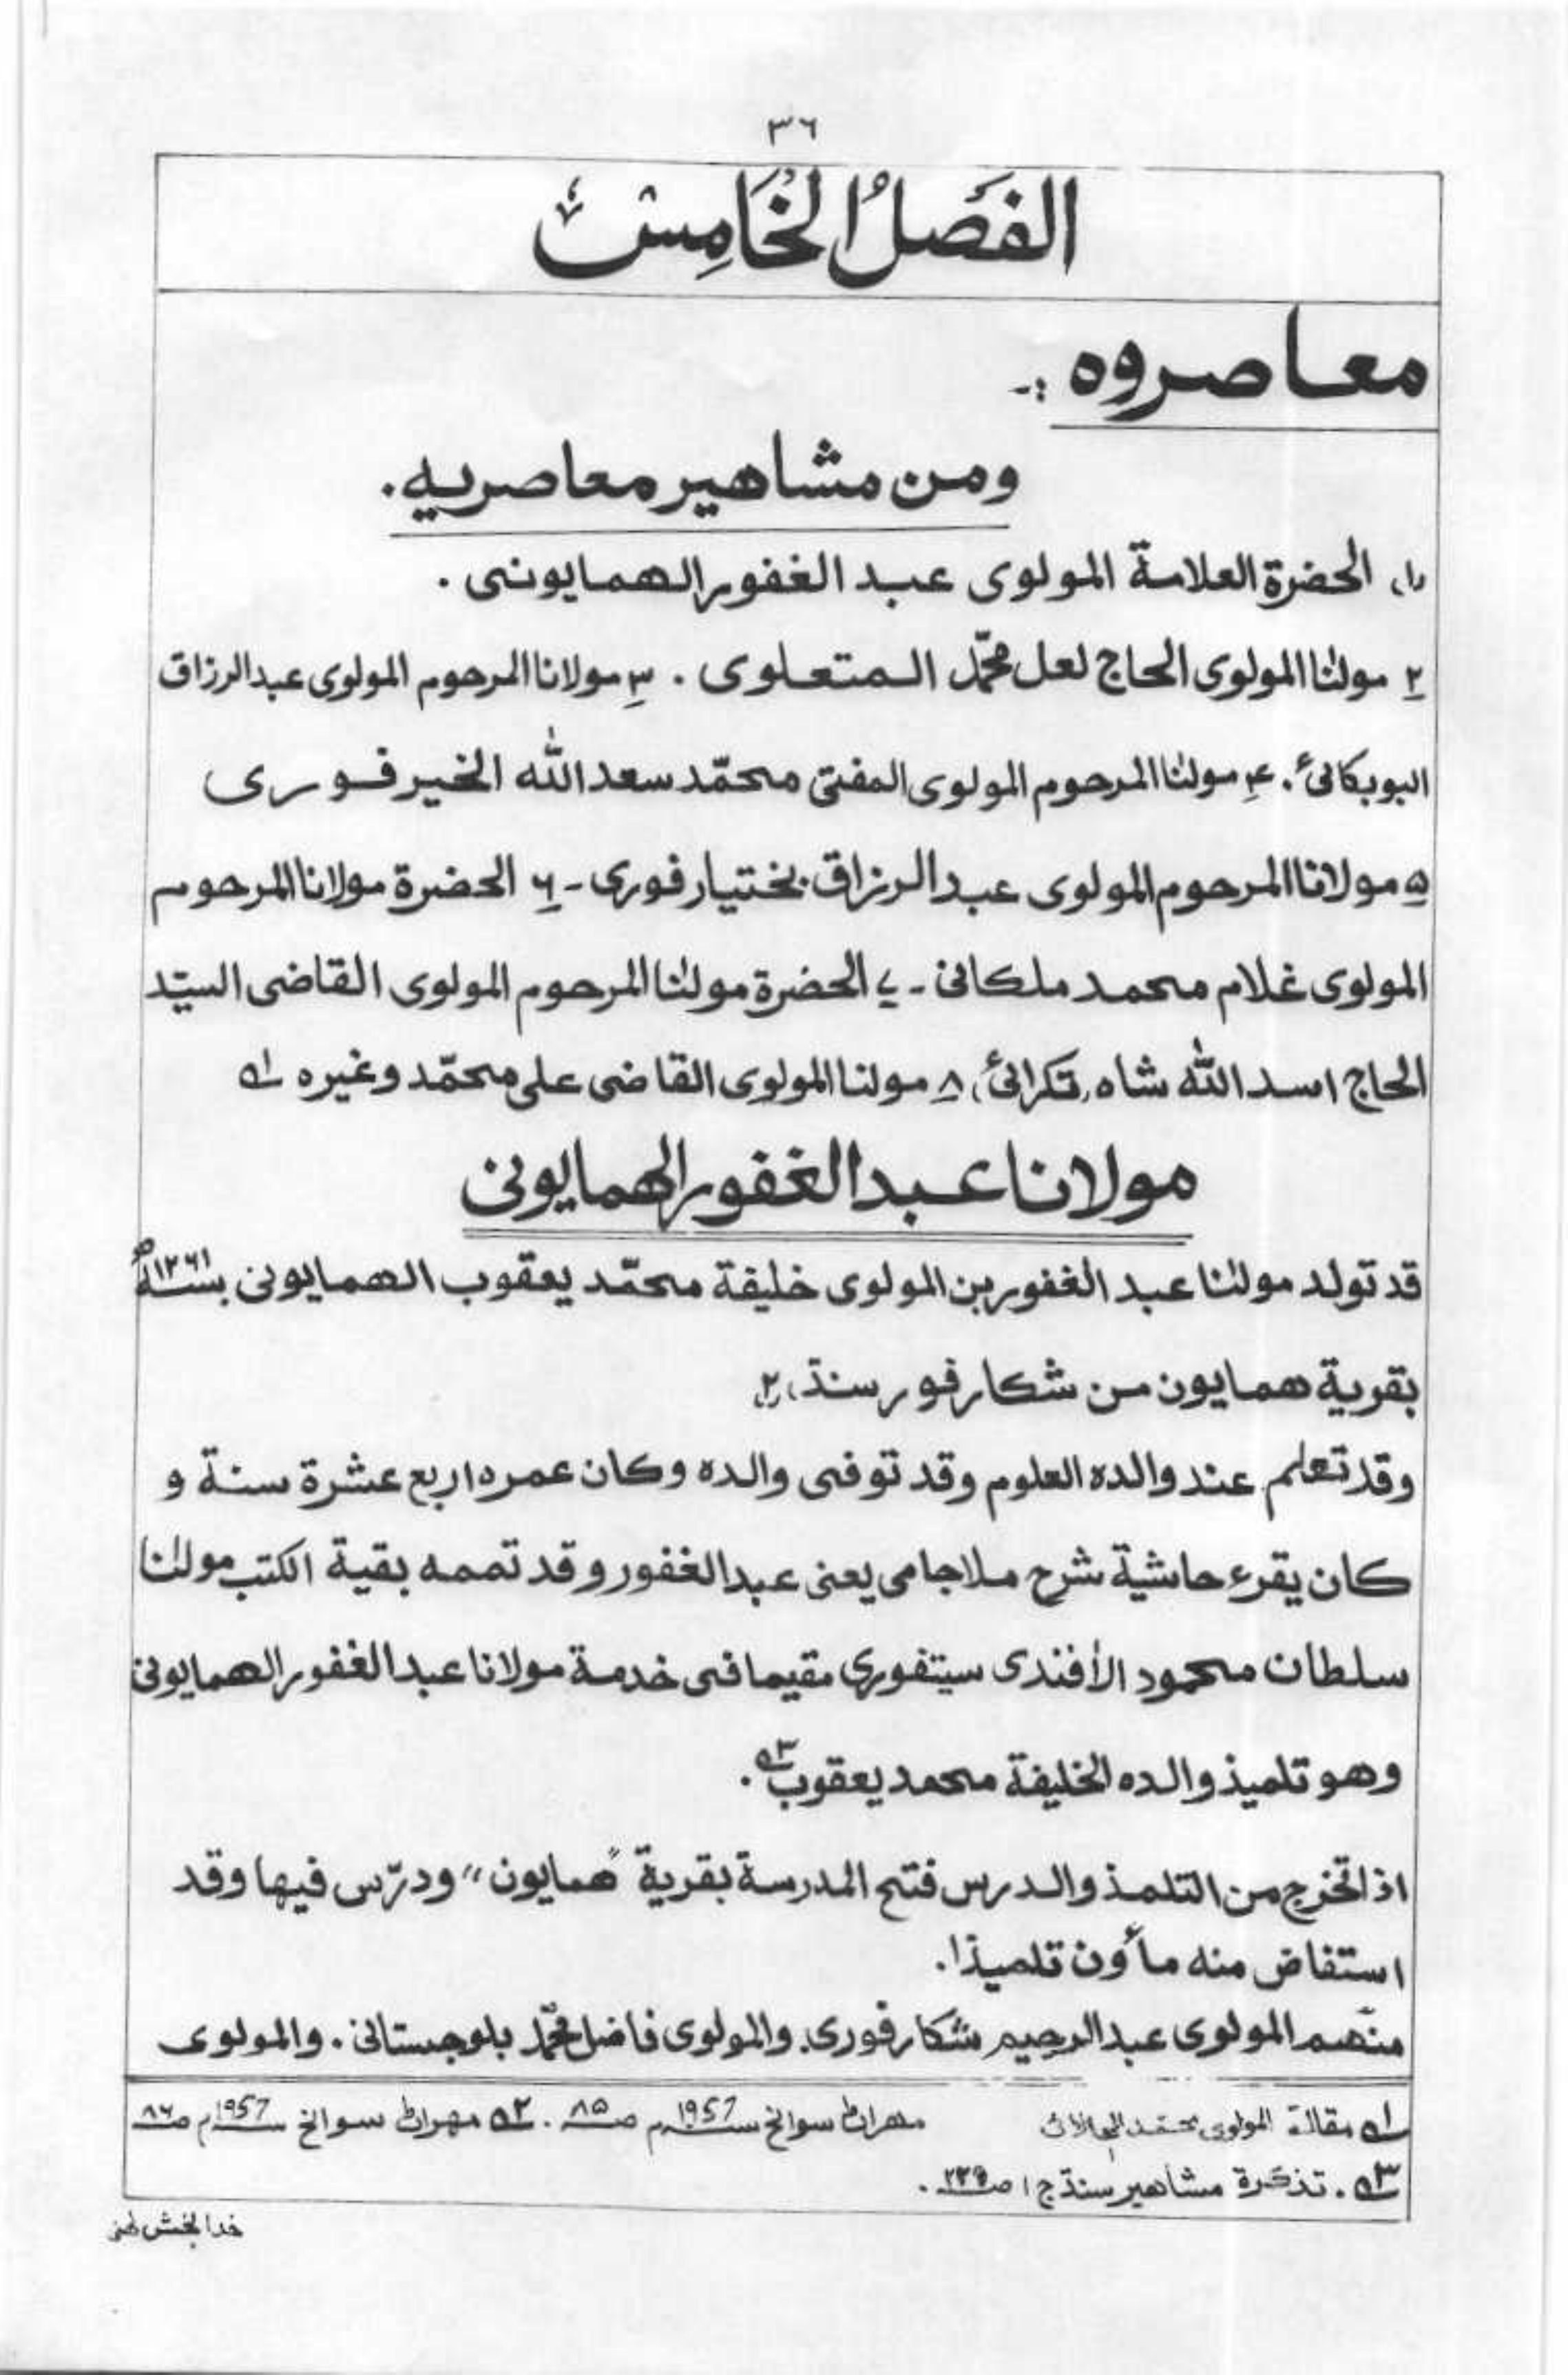 ٣٦
الفَصلُ الخَامِسُ
معاصروه :-
ومن مشاهير معاصريه.
(١) الحضرة العلامة المولوى عبد الغفور الهمايونى .
٢ مولٰنا المولوى الحاج لعل محمّد المتعلوى . ٣ مولانا المرحوم المولوى عبدالرزاق
البوبكانیٔ . ۴ مولٰنا المرحوم المولوى المفتى محمّد سعد اللّٰه الخير فورى
۵ مولانا المرحوم المولوى عبد الرزاق بختيار فورى - ۶ الحضرة مولانا المرحوم
المولوى غلام محمد ملكانى - ٧ الحضرة مولٰنا المرحوم المولوى القاضى السيّد
الحاج اسد اللّٰه شاه، تكرائیٔ، ٨ مولنا المولوى القاضى على محمّد وغيره ١ھ
مولانا عبد الغفور الهمايونى
قد تولد مولٰنا عبد الغفور بن المولوى خليفة محمّد يعقوب الهمايونى بسنة ١٢٦١ھ
بقرية همايون من شكارفور سنڌ (٢)
وقد تعلم عند والده العلوم وقد توفى والده وكان عمره اربع عشرة سنة و
كان يقرء حاشية شرح ملاجامى يعنى عبدالغفور وقد تممه بقية الكتب مولٰنا
سلطان محمود الأفندى سيتفورى مقيما فى خدمة مولانا عبد الغفور الهمايونى
وهو تلميذ والده الخليفة محمد يعقوب ٣ھ .
اذا تخرج من التلمذ والدرس فتح المدرسة بقرية "همايون" ودرّس فيها وقد
استفاض منه مأون تلميذا.
منهم المولوى عبد الرحيم شكارفورى. والمولوى فاضل محمّد بلوچستانى . والمولوى
١ھ مقالة المولوى محمد مهراڻ سوانح سنه 1957م صـ ٨٥ . ٢ھ مهراڻ سوانح سنه 1957م صـ ٨٦
٣ھ . تذكرة مشاهير سنڌ ج ١ صـ ٢٢٩ .
خدا بخش